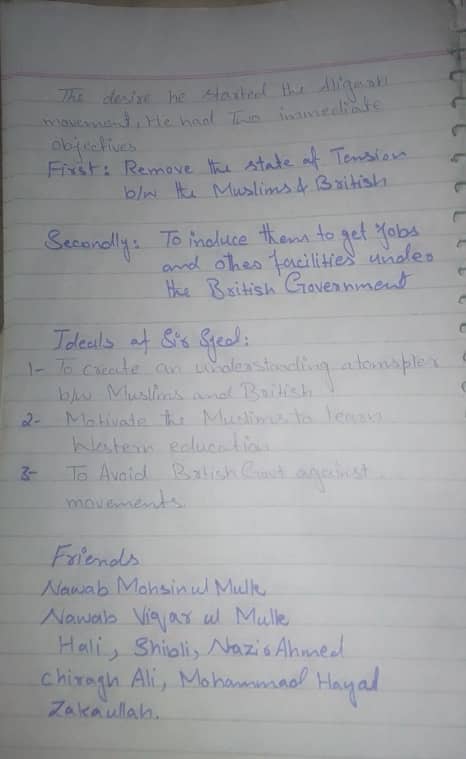 The desire he started the Aligarh
movement, He had Two immediate
objectives
First: Remove the state of Tension
b/w the Muslims & British
Secondly: To induce them to get Jobs
and other facilities under
the British Government
Ideals of Sir Syed:
1- To create an understanding atomspler
b/w Muslims and British
2- Motivate the Muslims to learn
Western education
3- To Avoid British Govt against
movements.
Friends
Nawab Mohsin ul Mulk
Nawab Viqar ul Mulk
Hali, Shibli, Nazir Ahmed
Chiragh Ali, Mohammad Hayat
Zakaullah.